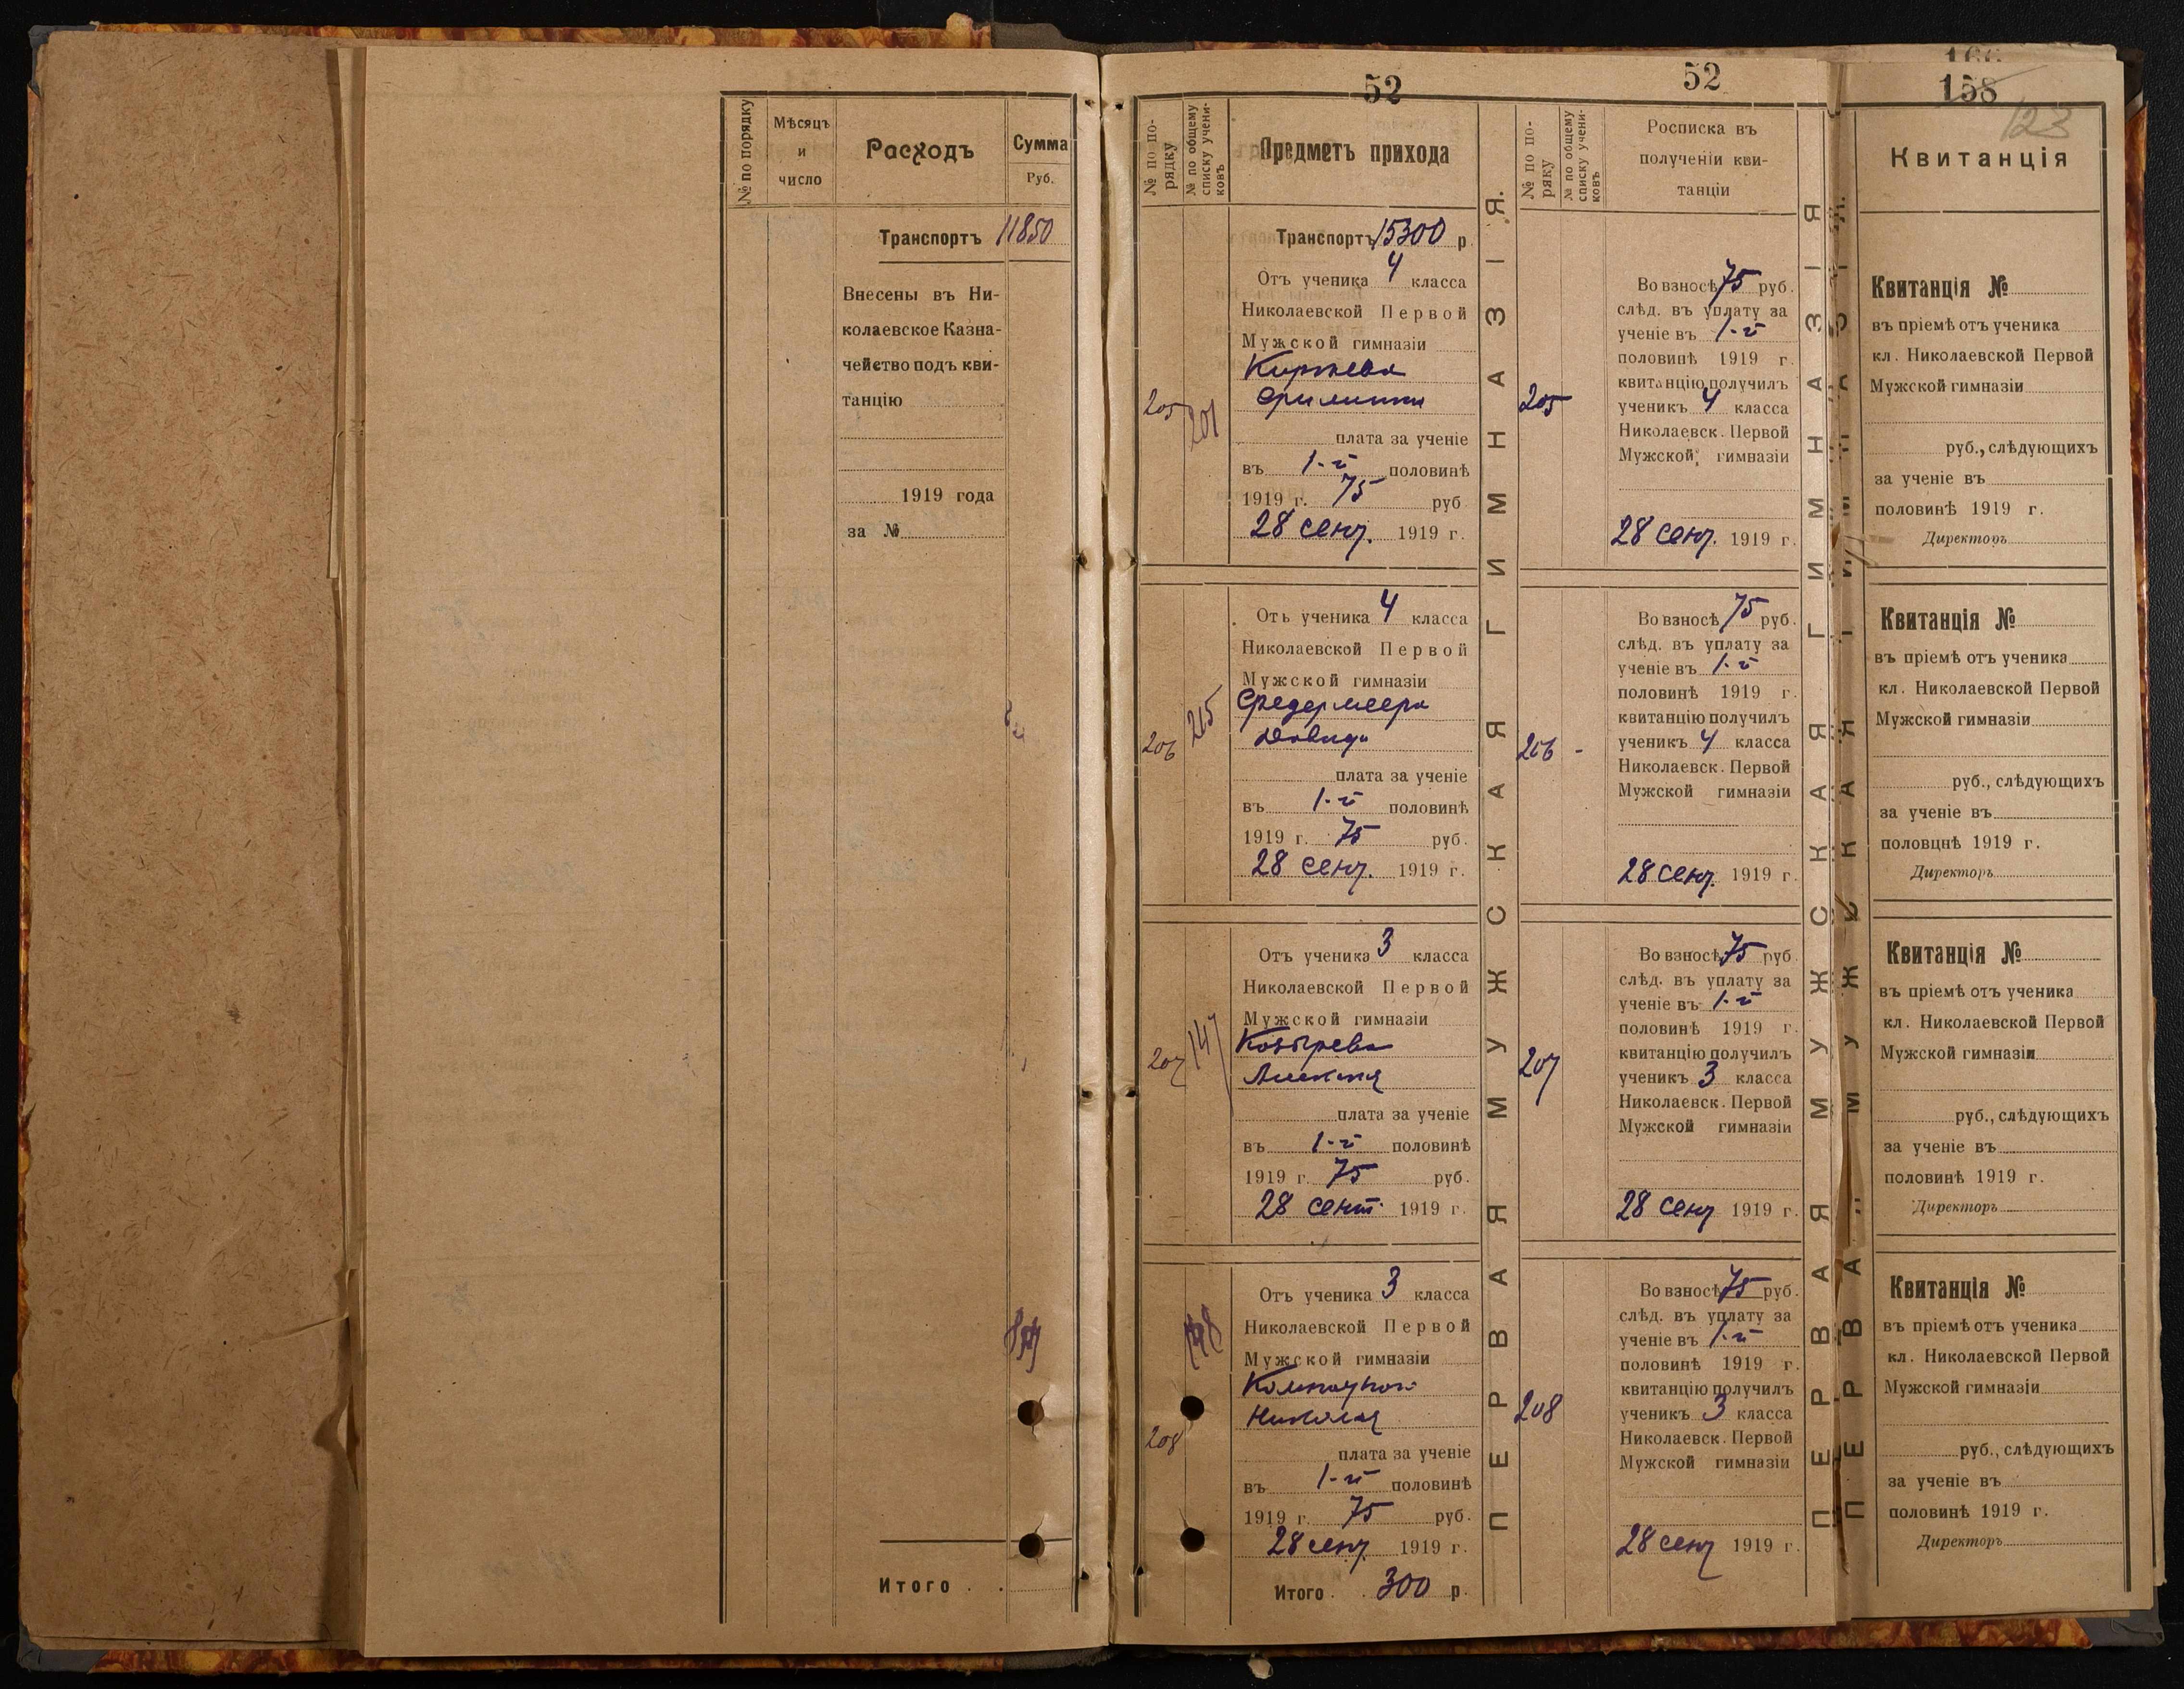 № по порядку
Мѣсяцъ
и
число
Расходъ
Сумма
Руб.
Транспортъ 11850
Внесены въ Ни-
колаевское Казна-
чейство подъ кви-
танцію
1919 года
за №
Итого . .
52
№ по по-
рядку
№ по общему
списку учени-
ковъ
Предметъ прихода
Транспортъ 15300 р.
Отъ ученика 4 класса
Николаевской Первой
Мужской гимназіи
205
201
плата за ученіе
въ 1-й половинѣ
1919 г. 75 руб
28 сент. 1919 г.
Отъ ученика 4 класса
Николаевской Первой
Мужской гимназіи
Фредермеера
Давида
206
215
плата за ученіе
въ 1-й половинѣ
1919 г. 75 руб.
28 сент. 1919 г.
Отъ ученика 3 класса
Николаевской Первой
Мужской гимназіи
Козырева
Алексея
207
147
плата за ученіе
въ 1-й половинѣ
1919 г. 75 руб.
28 сент. 1919 г.
Отъ ученика 3 класса
Николаевской Первой
Мужской гимназіи
Николая
208
148
плата за ученіе
въ 1-й половинѣ
1919 г. 75 руб.
28 сент 1919 г.
Итого . . 300 р.
ПЕРВАЯ МУЖСКАЯ ГИМНАЗІЯ.
52
№ по по-
ряку
№ по общему
списку учени-
ковъ
Росписка въ
полученіи кви-
танціи
205
Во взносѣ 75 руб.
слѣд. въ уплату за
ученіе въ 1-й
половинѣ 1919 г.
квитанцію получилъ
ученикъ 4 класса
Николаевск. Первой
Мужской гимназіи
28 сент. 1919 г.
206
Во взносѣ 75 руб.
слѣд. въ уплату за
ученіе въ 1-й
половинѣ 1919 г.
квитанцію получилъ
ученикъ 4 класса
Николаевск. Первой
Мужской гимназіи
28 сент. 1919 г.
207
Во взносѣ 75 руб
слѣд. въ уплату за
ученіе въ 1-й
половинѣ 1919 г.
квитанцію получилъ
ученикъ 3 класса
Николаевск. Первой
Мужской гимназіи
28 сент 1919 г.
208
Во взносѣ 75 руб.
слѣд. въ уплату за
ученіе въ 1-й
половинѣ 1919 г.
квитанцію получилъ
ученикъ 3 класса
Николаевск. Первой
Мужской гимназіи
28 сент 1919 г.
ПЕРВАЯ МУЖСКАЯ ГИМНАЗІЯ
158
123
Квитанція
Квитанція №
въ пріемѣ отъ ученика
кл. Николаевской Первой
Мужской гимназіи
руб., слѣдующихъ
за ученіе въ
половинѣ 1919 г.
Директоръ
Квитанція №
въ пріемѣ отъ ученика
кл. Николаевской Первой
Мужской гимназіи
руб., слѣдующихъ
за ученіе въ
половцнѣ 1919 г.
Директоръ
Квитанція №
въ пріемѣ отъ ученика
кл. Николаевской Первой
Мужской гимназіи
руб., слѣдующихъ
за ученіе въ
половинѣ 1919 г.
Директоръ
Квитанція №
въ пріемѣ отъ ученика
кл. Николаевской Первой
Мужской гимназіи
руб., слѣдующихъ
за ученіе въ
половинѣ 1919 г.
Директоръ